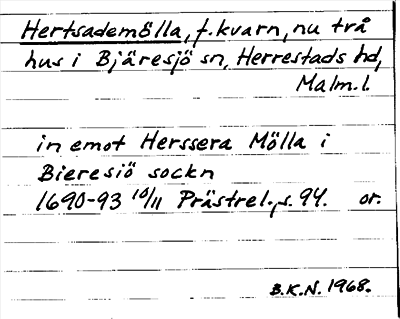 Hertsademölla, f. kvarn, nu två
hus i Bjäresjö sn, Herrestads hd,
Malm. l.
in emot Herssera Mölla i
Bieresiö sockn
1690-93 10/11 Prästrel., s. 94. or.
B.K.N. 1968.